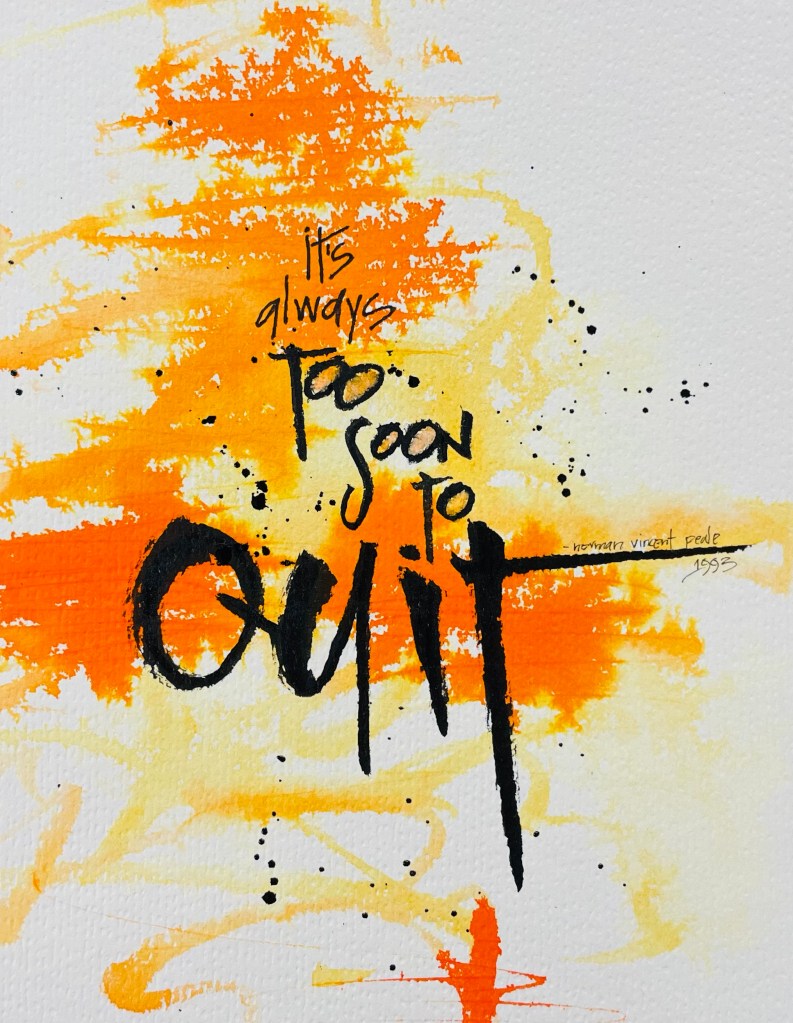 it's
always
TOO
SOON
TO
QUIT
- norman vincent peale
1993